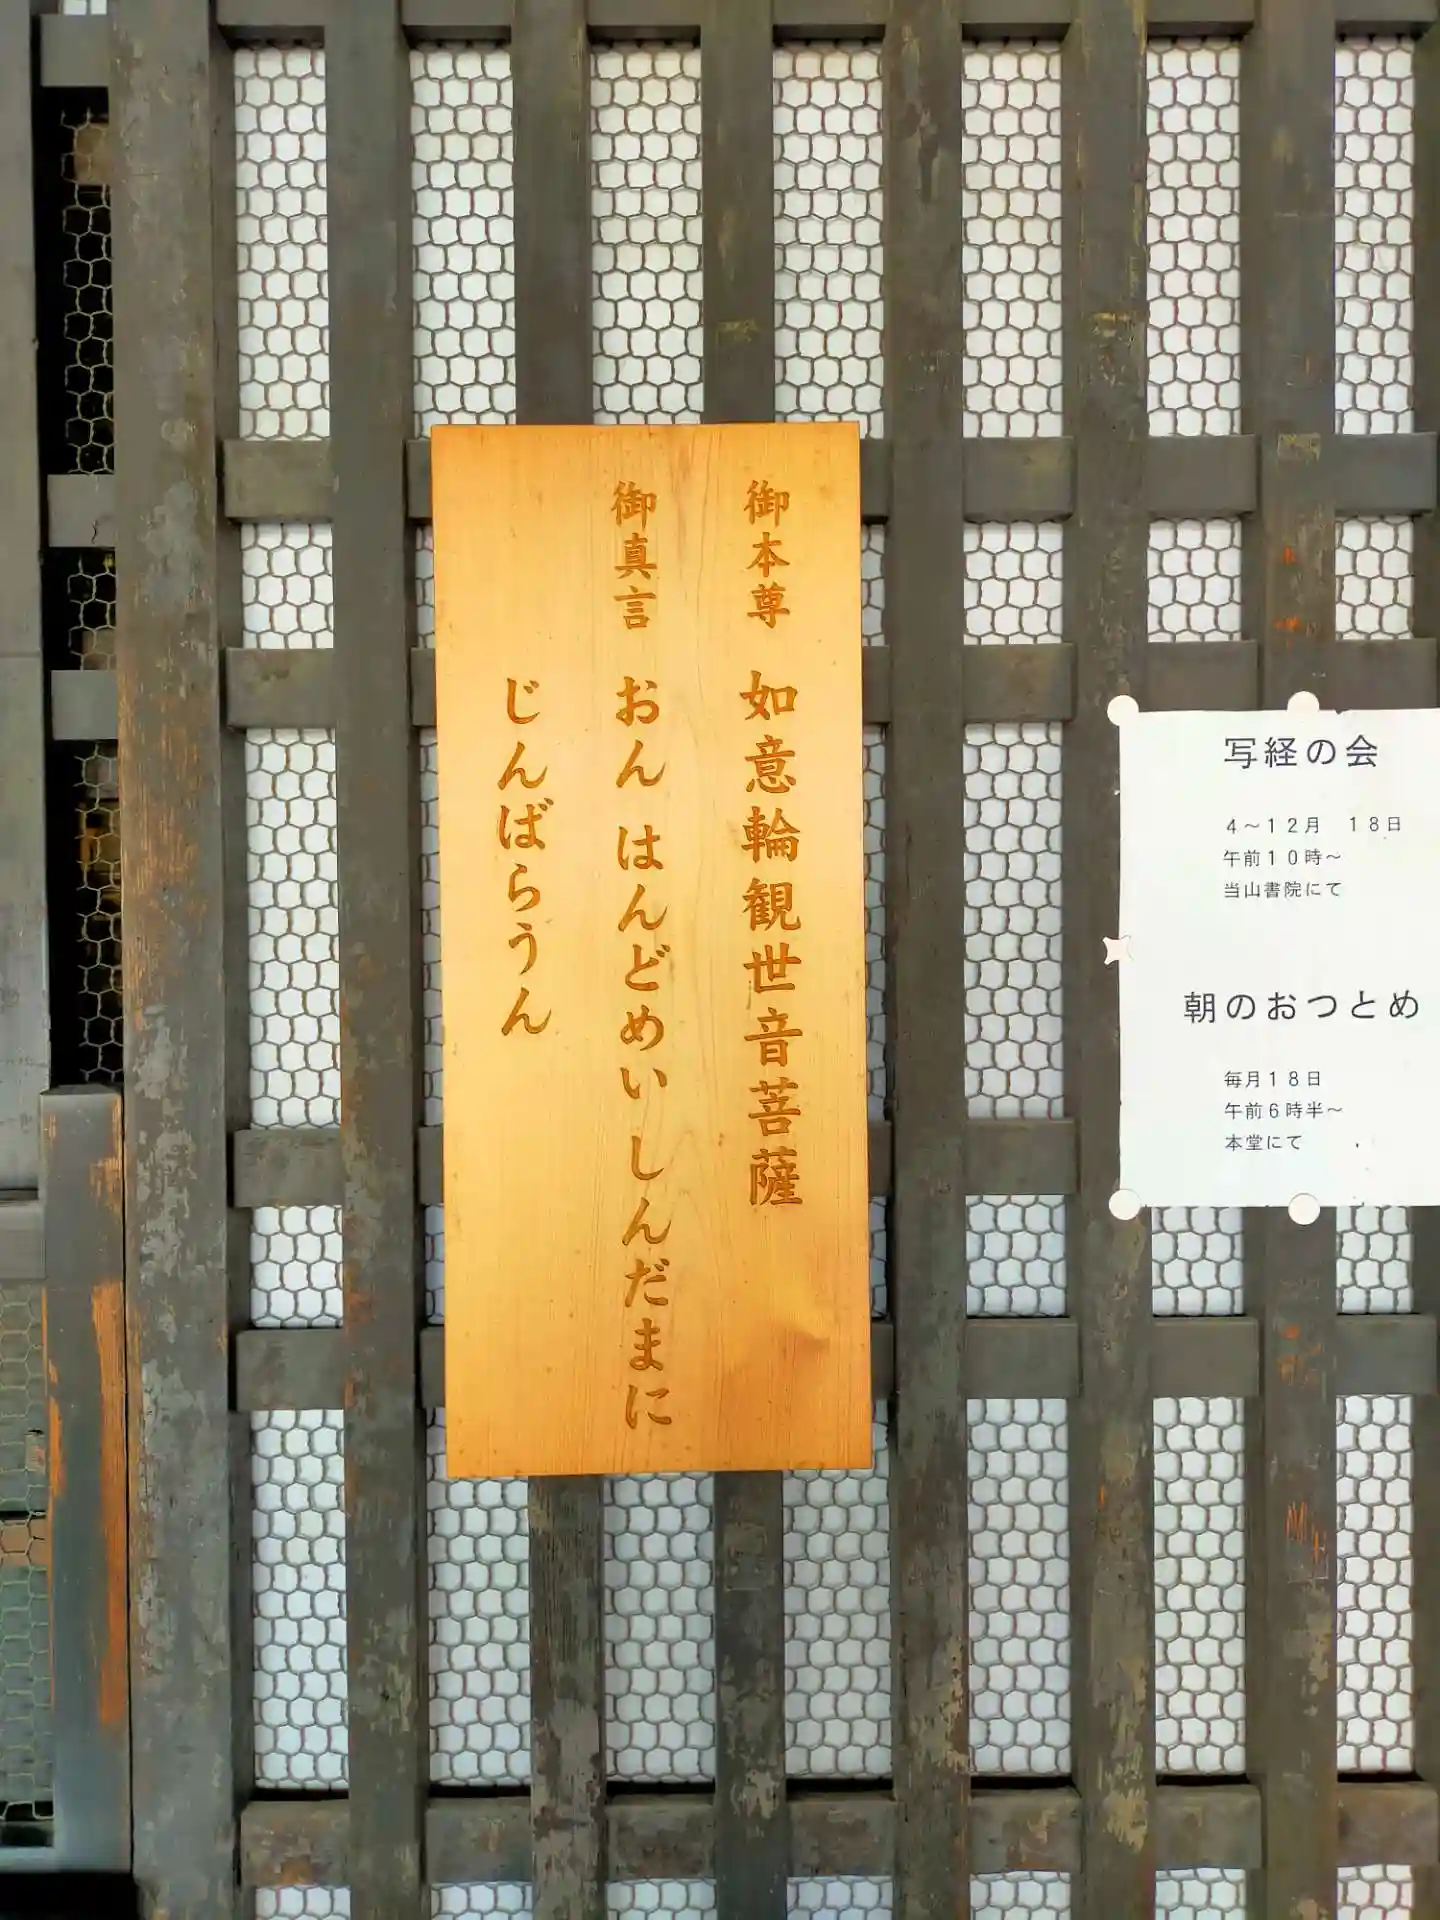 御本尊 如意輪観世音菩薩
御真言 おん はんどめい しんだまに
じんばらうん
写経の会
4～12月 18日
午前10時～
当山書院にて
朝のおつとめ
毎月18日
午前6時半～
本堂にて